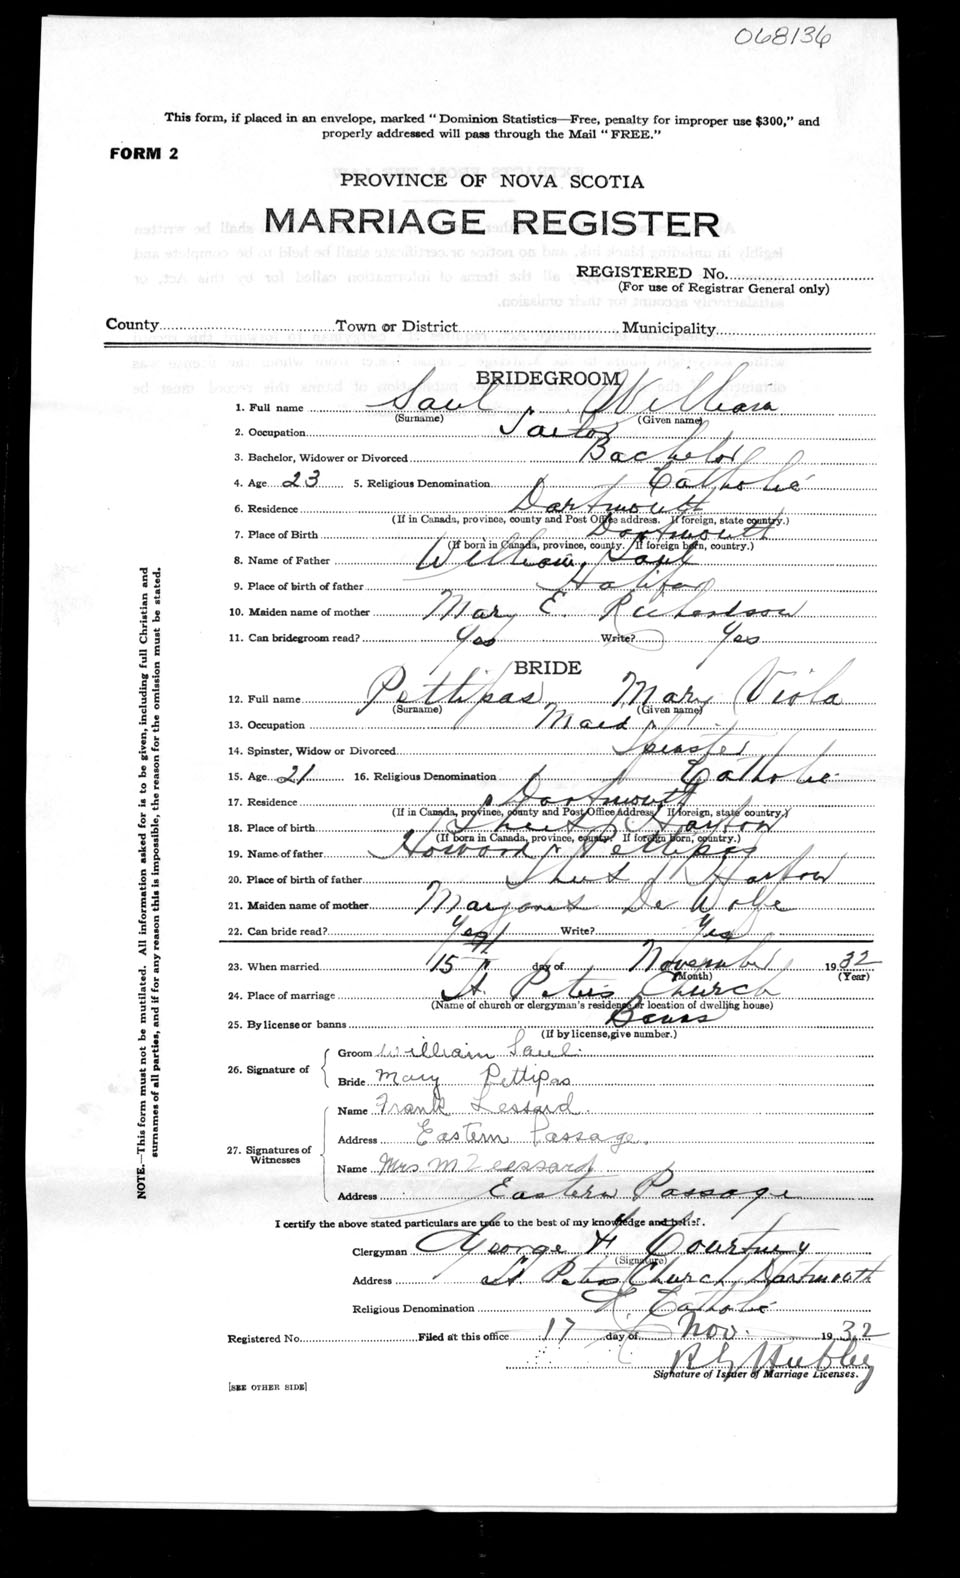 068136
This form, if placed in an envelope, marked " Dominion Statistics—Free, penalty for improper use $300," and
properly addressed will pass through the Mail " FREE."
FORM 2
PROVINCE OF NOVA SCOTIA
MARRIAGE REGISTER
REGISTERED No.
(For use of Registrar General only)
County Town or District Municipality
BRIDEGROOM
1. Full name Saul William
(Surname) (Given name)
2. Occupation
3. Bachelor, Widower or Divorced Bachelor
4. Age 23 5. Religious Denomination Catholic
6. Residence Dartmouth
(If in Canada, province, county and Post Office address. If foreign, state country.)
7. Place of Birth Dartmouth
(If born in Canada, province, county. If foreign born, country.)
8. Name of Father William Saul
9. Place of birth of father Halifax
10. Maiden name of mother Mary E. Richardson
11. Can bridegroom read? Yes Write? Yes
BRIDE
12. Full name Pettipas Mary Viola
(Surname) (Given name)
13. Occupation Maid
14. Spinster, Widow or Divorced Spinster
15. Age 21 16. Religious Denomination Catholic
17. Residence Dartmouth
(If in Canada, province, county and Post Office Address. If foreign, state country.)
18. Place of birth Harbor
(If born in Canada, province, county. If foreign born, country.)
19. Name of father Howard Pettipas
20. Place of birth of father Harbor
21. Maiden name of mother De Wolfe
22. Can bride read? Yes Write? Yes
23. When married 15th day of November 1932
(Month) (Year)
24. Place of marriage St. Peter's Church
(Name of church or clergyman's residence or location of dwelling house)
25. By license or banns Banns
(If by license, give number.)
26. Signature of
Groom William Saul.
Bride Mary Pettipas
27. Signatures of Witnesses
Name Frank Lessard.
Address Eastern Passage.
Name Mrs M Leessard
Address Eastern Passage
I certify the above stated particulars are true to the best of my knowledge and belief.
Clergyman George H Courtney
(Signature)
Address St Peters Church Dartmouth
Religious Denomination R. Catholic
Registered No. Filed at this office 17 day of Nov. 1932
Hubley
Signature of Issuer of Marriage Licenses.
[SEE OTHER SIDE]
NOTE.—This form must not be mutilated. All information asked for is to be given, including full Christian and
surnames of all parties, and if for any reason this is impossible, the reason for the omission must be stated.